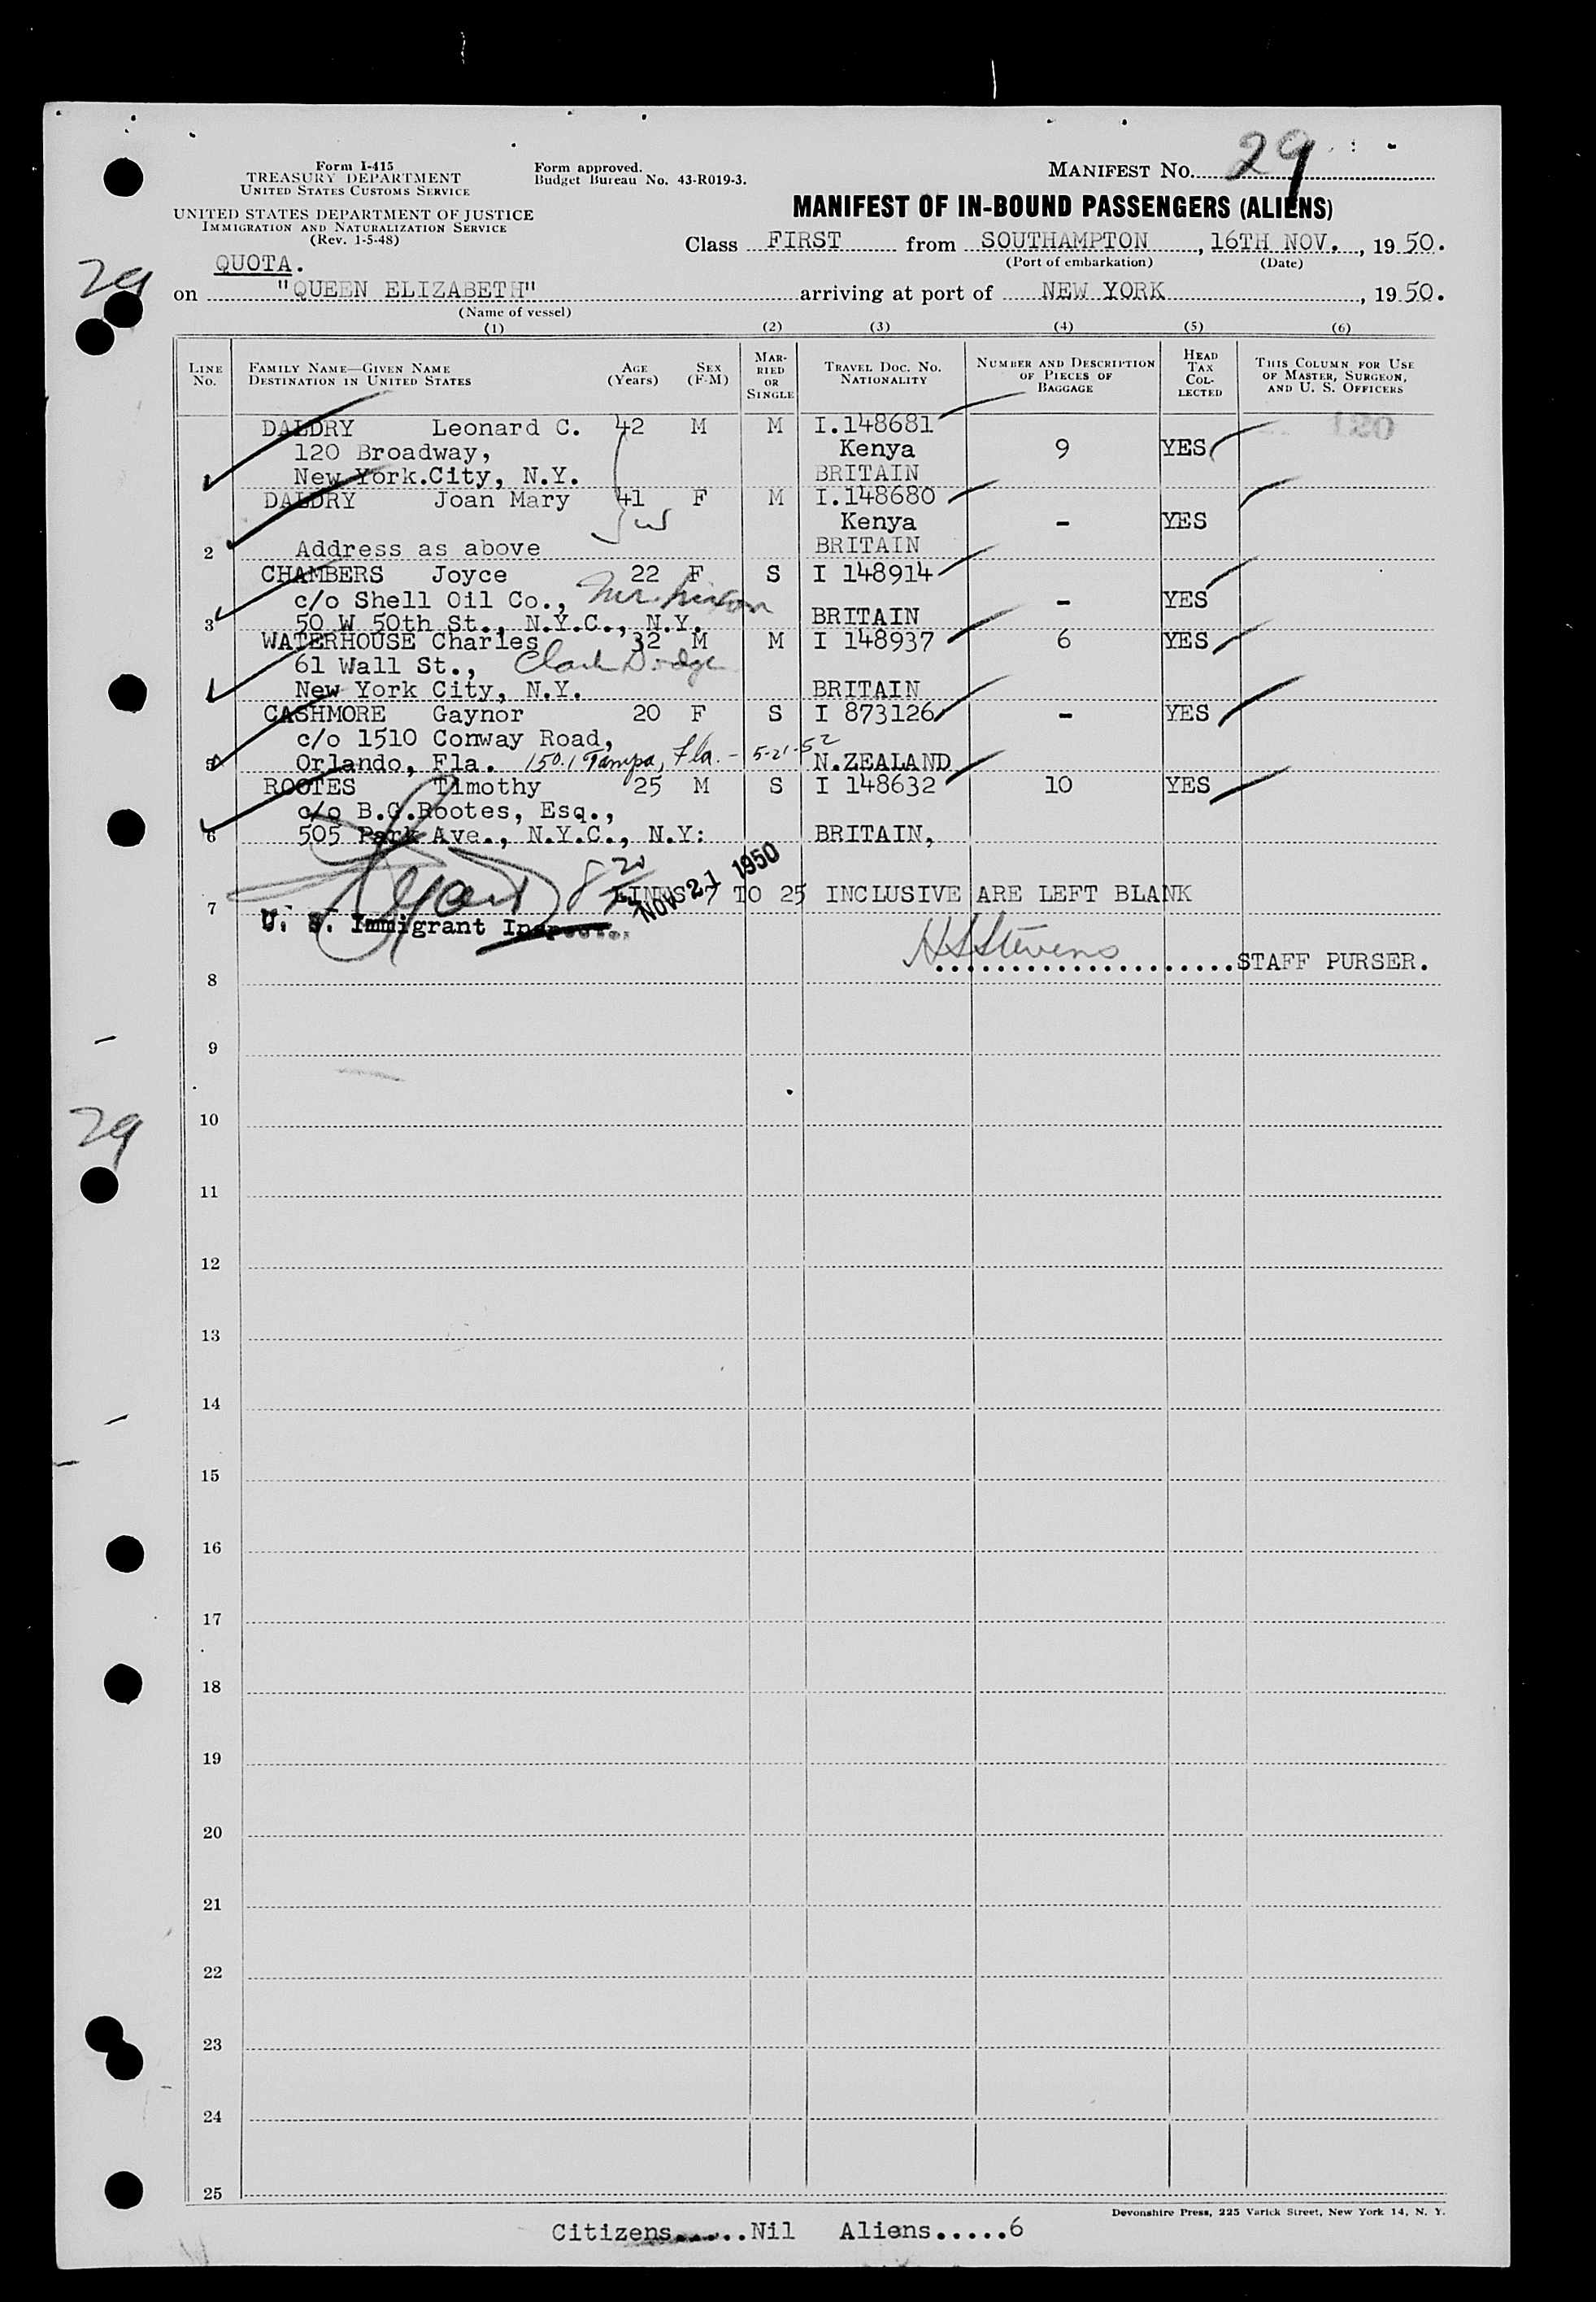 Form I-415
TREASURY DEPARTMENT
UNITED STATES CUSTOMS SERVICE
UNITED STATES DEPARTMENT OF JUSTICE
IMMIGRATION AND NATURALIZATION SERVICE
(Rev. 1-5-48)
Form approved.
Budget Bureau No. 43-R019-3.
MANIFEST NO. 29
MANIFEST OF IN-BOUND PASSENGERS (ALIENS)
Class FIRST from SOUTHAMPTON, 16TH NOV., 1950.
(Port of embarkation) (Date)
29
QUOTA.
on "QUEEN ELIZABETH" arriving at port of NEW YORK, 1950.
(Name of vessel)
(1) (2) (3) (4) (5) (6)
LINE No. FAMILY NAME—GIVEN NAME DESTINATION IN UNITED STATES AGE (Years) SEX (F-M) MARRIED OR SINGLE TRAVEL DOC. NO. NATIONALITY NUMBER AND DESCRIPTION OF PIECES OF BAGGAGE HEAD TAX COLLECTED THIS COLUMN FOR USE OF MASTER, SURGEON, AND U. S. OFFICERS
DALDRY Leonard C. 42 M M I.148681
120 Broadway, Kenya 9 YES
New York.City, N.Y. BRITAIN
DALDRY Joan Mary 41 F M I.148680
Kenya - YES
2 Address as above BRITAIN
CHAMBERS Joyce 22 F S I 148914
c/o Shell Oil Co., Mr. Nixon - YES
3 50 W 50th St., N.Y.C., N.Y. BRITAIN
WATERHOUSE Charles 32 M M I 148937 6 YES
61 Wall St., Clark Dodge
New York City, N.Y. BRITAIN
CASHMORE Gaynor 20 F S I 873126 - YES
c/o 1510 Conway Road,
5 Orlando, Fla. 150.1 Tampa, Fla. - 5-21-52 N.ZEALAND
ROOTES Timothy 25 M S I 148632 10 YES
c/o B.G.Rootes, Esq.,
6 505 Park Ave., N.Y.C., N.Y: BRITAIN,
NOV 21 1950
7 LINES 7 TO 25 INCLUSIVE ARE LEFT BLANK
U. S. Immigrant Inspector
H S Stevens
STAFF PURSER.
8
9
10
29
11
12
13
14
15
16
17
18
19
20
21
22
23
24
25
Devonshire Press, 225 Varick Street, New York 14, N. Y.
Citizens......Nil Aliens.....6